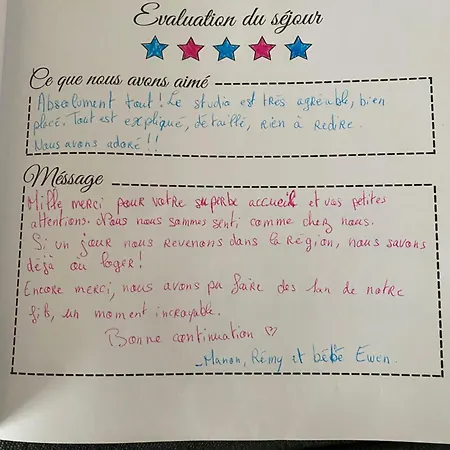 Evaluation du séjour
Ce que nous avons aimé
Absolument tout ! Le studio est très agréable, bien
placé. Tout est expliqué, détaillé, rien à redire.
Nous avons adoré !!
Méssage
Mille merci pour votre superbe accueil et vos petites
attentions. Nous nous sommes senti comme chez nous.
Si un jour nous revenons dans la région, nous savons
déjà où loger !
Encore merci, nous avons pu faire des 1an de notre
fils, un moment incroyable.
Bonne continuation ♡
- Manon, Rémy et bébé Ewen.